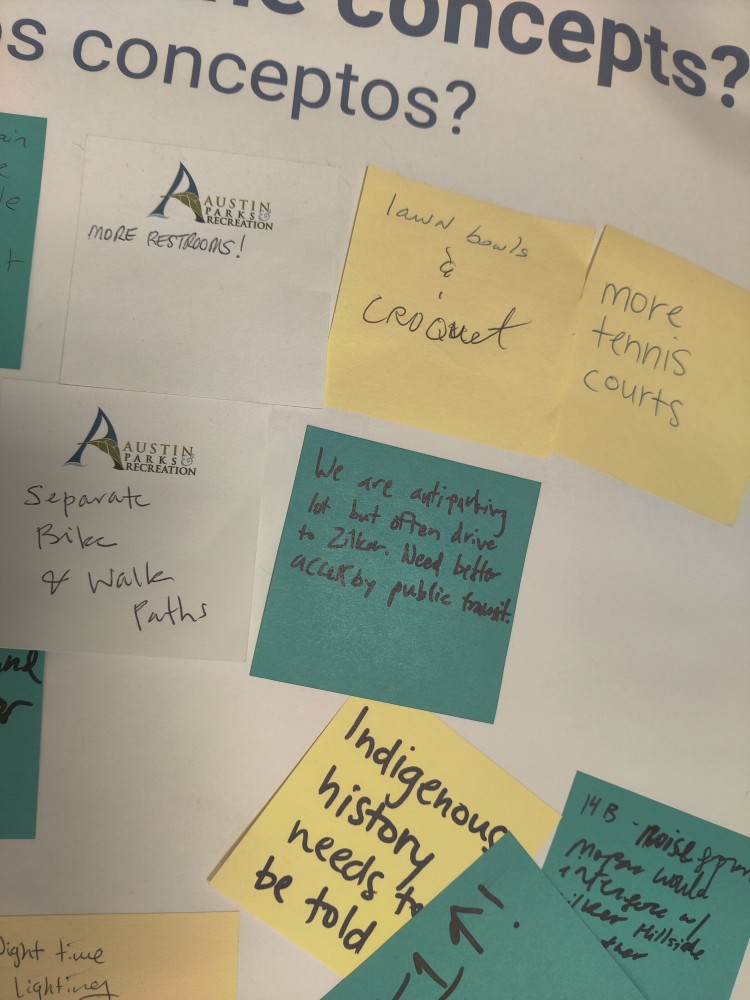 concepts?
os conceptos?
AUSTIN
PARKS &
RECREATION
MORE RESTROOMS!
lawn bowls
&
CROQuet
more
tennis
courts
AUSTIN
PARKS &
RECREATION
Separate
Bike
& Walk
Paths
We are antiparking
lot but often drive
to Zilker. Need better
access by public transit.
Indigenous
history
needs to
be told
14B - Noise from
Mopac would
interfere w/
Zilker Hillside
Night time
Lighting